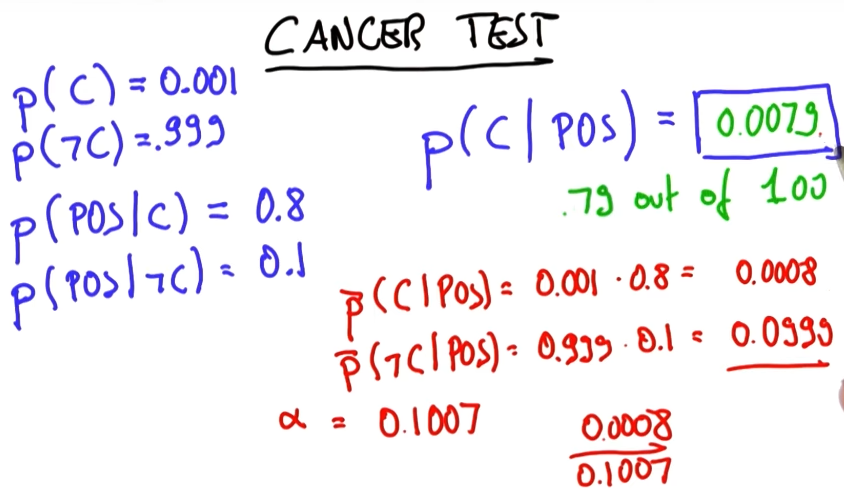 CANCER TEST
p(C) = 0.001
p(¬C) = .999
p(POS|C) = 0.8
p(POS|¬C) = 0.1
p(C|POS) = 0.0079.
.79 out of 100
p̄(C|POS) = 0.001 · 0.8 = 0.0008
p̄(¬C|POS) = 0.999 · 0.1 = 0.0999
α = 0.1007
0.0008
0.1007